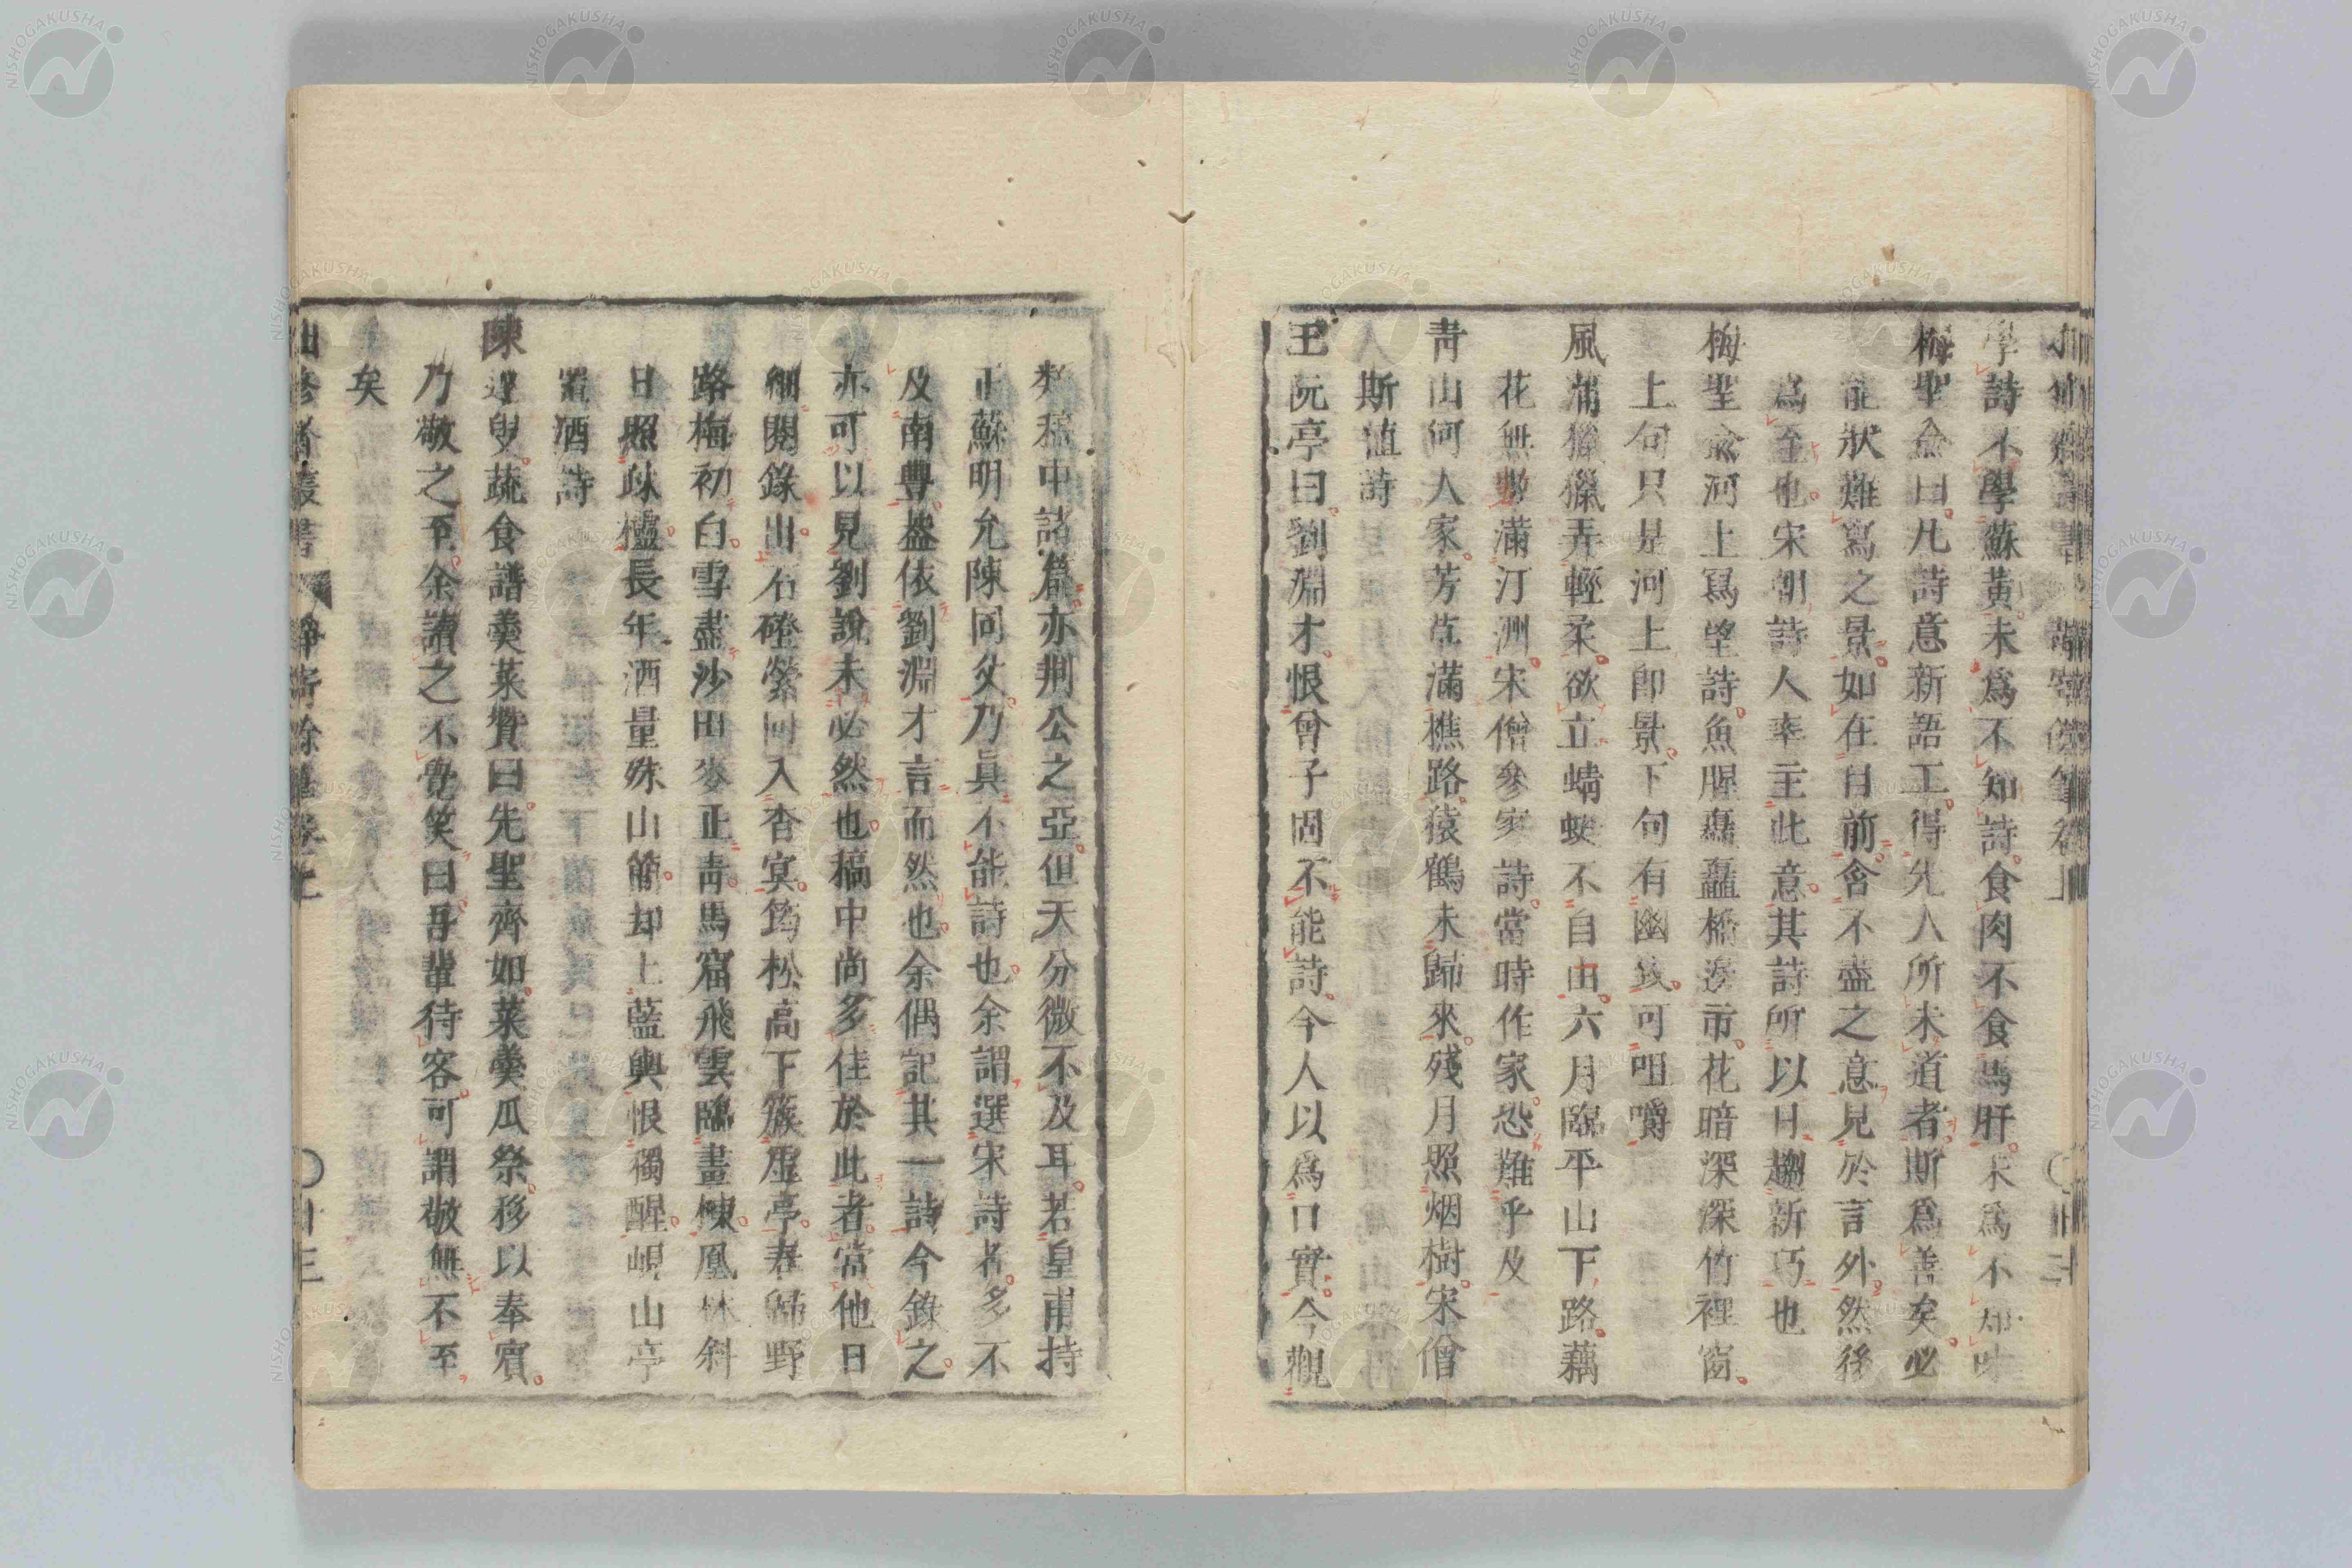 學詩不學蘇黃未爲不知詩食肉不食馬肝未爲不知味
梅聖俞曰凡詩意新語工得先人所未道者斯爲善矣必
能狀難寫之景如在目前含不盡之意見於言外然後
爲至也宋朝詩人率主此意其詩所以日趨新巧也
梅聖俞河上寫望詩魚腥矗矗橋邊市花暗深深竹裡窗
上句只是河上卽景下句有幽致可咀嚼
風蒲獵獵弄輕柔欲立蜻蜓不自由六月臨平山下路藕
花無數滿汀洲宋僧參寥詩當時作家恐難乎及
靑山何人家芳草滿樵路猿鶴未歸來殘月照烟樹宋僧
斯植詩
王阮亭曰劉淵才恨曾子固不能詩今人以爲口實今觀
類稿中諸篇亦荆公之亞但天分微不及耳若皇甫持
正蘇明允陳同父乃眞不能詩也余謂選宋詩者多不
及南豐蓋依劉淵才言而然也余偶記其一詩今錄之
亦可以見劉說未必然也稿中尙多佳於此者當他日
細閱錄出石磴縈回入杳冥筠松高下簇虛亭春歸野
路梅初白雪盡沙田麥正靑馬窟飛雲臨畫棟鳳林斜
日照疎欞長年酒量殊山簡却上藍輿恨獨醒峴山亭
置酒詩
陳達叟蔬食譜羹菜贊曰先聖齊如菜羹瓜祭移以奉賓
乃敬之至余讀之不覺笑曰吾輩待客可謂敬無不至
矣
仙修齋叢書 靜寄餘筆卷上 〇廿三